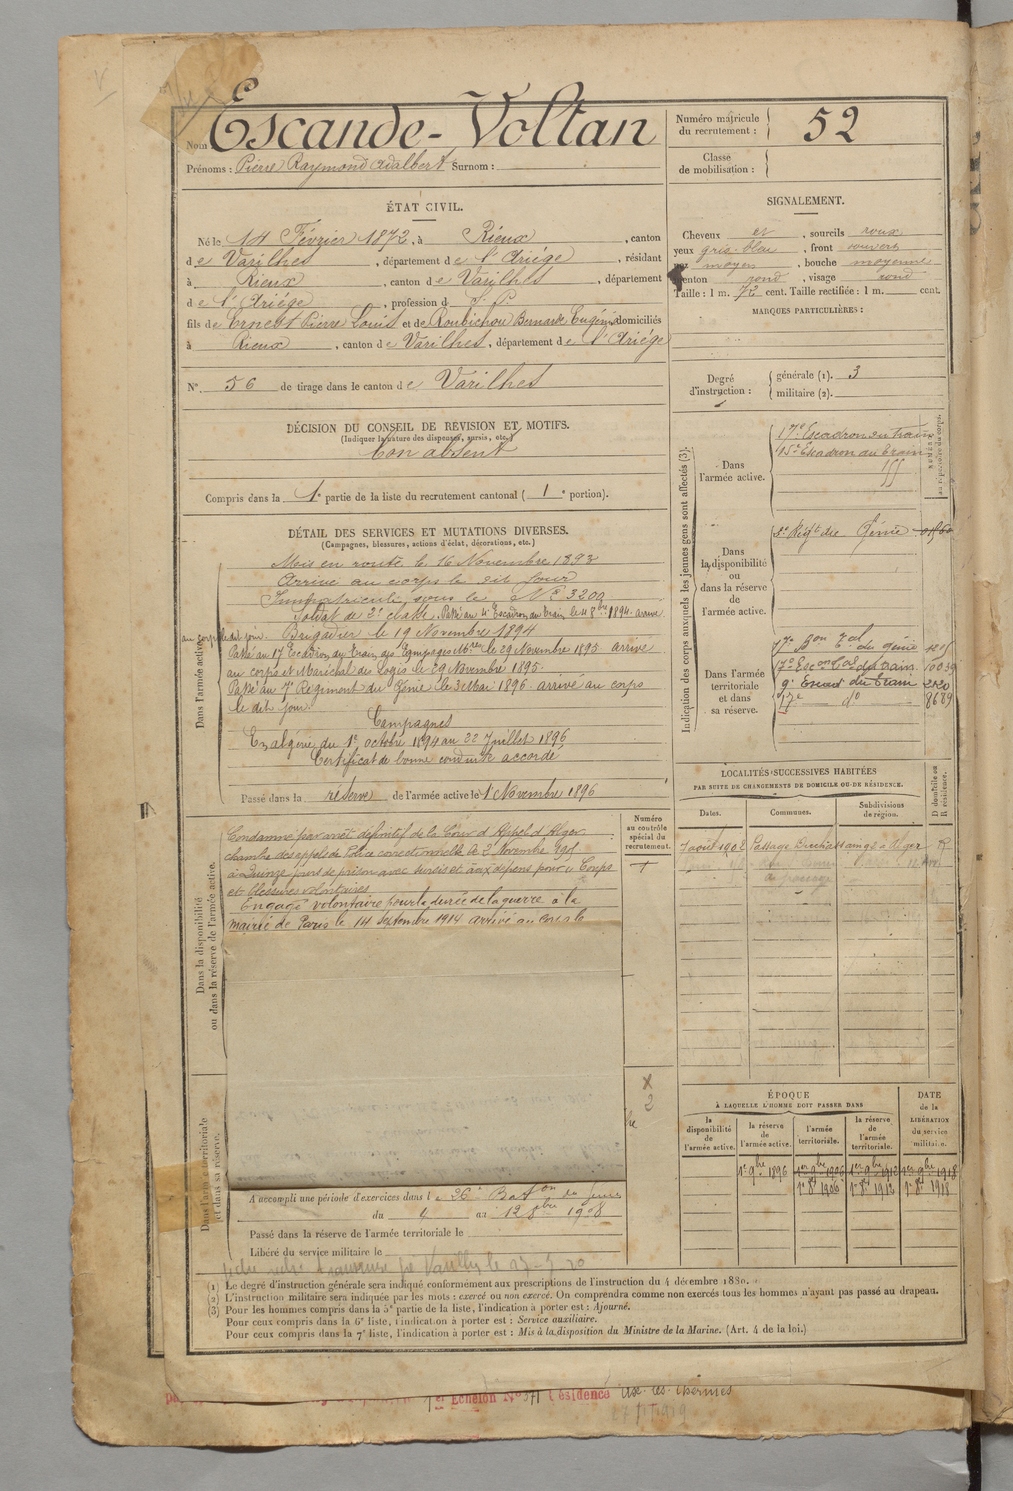 Nom Escande-Voltan
Prénoms : Pierre Raymond Adalbert Surnom :
Numéro matricule
du recrutement :
52
Classe
de mobilisation :
ÉTAT CIVIL.
Né le 14 Février 1872, à Rieux, canton
de Varilhes, département de l'Ariége, résidant
à Rieux, canton de Varilhes, département
de l'Ariége, profession d
fils de Ernest Pierre Louis et de Roubichou Bernarde Eugénie domiciliés
à Rieux, canton de Varilhes, département de l'Ariége
N° 56 de tirage dans le canton de Varilhes
DÉCISION DU CONSEIL DE RÉVISION ET MOTIFS.
(Indiquer la nature des dispenses, sursis, etc.)
bon absent
Compris dans la 1e partie de la liste du recrutement cantonal (1e portion).
SIGNALEMENT.
Cheveux et, sourcils roux
yeux gris-bleu, front ouvert
nez moyen, bouche moyenne
menton rond, visage rond
Taille : 1 m. 72 cent. Taille rectifiée : 1 m. cent.
MARQUES PARTICULIÈRES :
Degré
d'instruction :
générale (1). 3
militaire (2).
Indication des corps auxquels les jeunes gens sont affectés (3).
NUMÉRO
au répertoire du corps.
Dans
l'armée active.
17e Escadron du train
15e Escadron du train
Dans
la disponibilité
ou
dans la réserve
de
l'armée active.
Régt du Génie
Dans l'armée
territoriale
et dans
sa réserve.
17e Bon Tal du génie
17e Escon Tal du train
9e Escad du train
17e do 8689
DÉTAIL DES SERVICES ET MUTATIONS DIVERSES.
(Campagnes, blessures, actions d'éclat, décorations, etc.)
Dans l'armée active.
Mis en route le 16 Novembre 1893
Arrivé au corps le dit jour
Immatriculé sous le N° 3200
Soldat de 2e classe. Passé au 4e Escadron du train le 4 8bre 1894. arrivé
au corps ledit jour. Brigadier le 19 Novembre 1894
Passé au 17 Escadron du Train des Equipages Mres le 29 Novembre 1895 arrivé
au corps et Maréchal de Logis le 29 Novembre 1895.
Passé au 7e Regiment du Génie le 3 Mai 1896. arrivé au corps
le dit jour.
Campagnes
En algérie du 1e octobre 1894 au 22 Juillet 1896
Certificat de bonne conduite accordé
Passé dans la réserve de l'armée active le 1 Novembre 1896
Numéro
au contrôle
spécial du
recrutement.
Dans la disponibilité
ou dans la réserve de l'armée active.
Condamné par arrêt définitif de la Cour d'Appel d'Alger
chambre des appels de Police correctionnelle le 2 Novembre
à Quinze jours de prison avec sursis et aux dépens pour Coups
et blessures volontaires
Engagé volontaire pour la durée de la guerre à la
mairie de Paris le 14 Septembre 1914 arrivé au corps le
LOCALITÉS SUCCESSIVES HABITÉES
PAR SUITE DE CHANGEMENTS DE DOMICILE OU DE RÉSIDENCE.
Dates.
Communes.
Subdivisions
de région.
D domicile ou
R résidence.
7 août 1902 Passage Alger R
X
2
Dans l'armée territoriale
et dans sa réserve.
A accompli une période d'exercices dans le 36e Baton du Génie
du 4 au 12 8bre 1908
Passé dans la réserve de l'armée territoriale le
Libéré du service militaire le
ÉPOQUE
À LAQUELLE L'HOMME DOIT PASSER DANS
DATE
de la
LIBÉRATION
du service
militaire.
la
disponibilité
de
l'armée active.
la réserve
de
l'armée active.
l'armée
territoriale.
la réserve
de
l'armée
territoriale.
1er 9bre 1896 1er 9bre 1906 1er 9bre 1912 1er 9bre 1918
1er 8bre 1906 1er 8bre 1912 1er 8bre 1918
(1) Le degré d'instruction générale sera indiqué conformément aux prescriptions de l'instruction du 4 décembre 1880.
(2) L'instruction militaire sera indiquée par les mots : exercé ou non exercé. On comprendra comme non exercés tous les hommes n'ayant pas passé au drapeau.
(3) Pour les hommes compris dans la 5e partie de la liste, l'indication à porter est : Ajourné.
Pour ceux compris dans la 6e liste, l'indication à porter est : Service auxiliaire.
Pour ceux compris dans la 7e liste, l'indication à porter est : Mis à la disposition du Ministre de la Marine. (Art. 4 de la loi.)
Échelon N° 371 Résidence Ax-les-Thermes